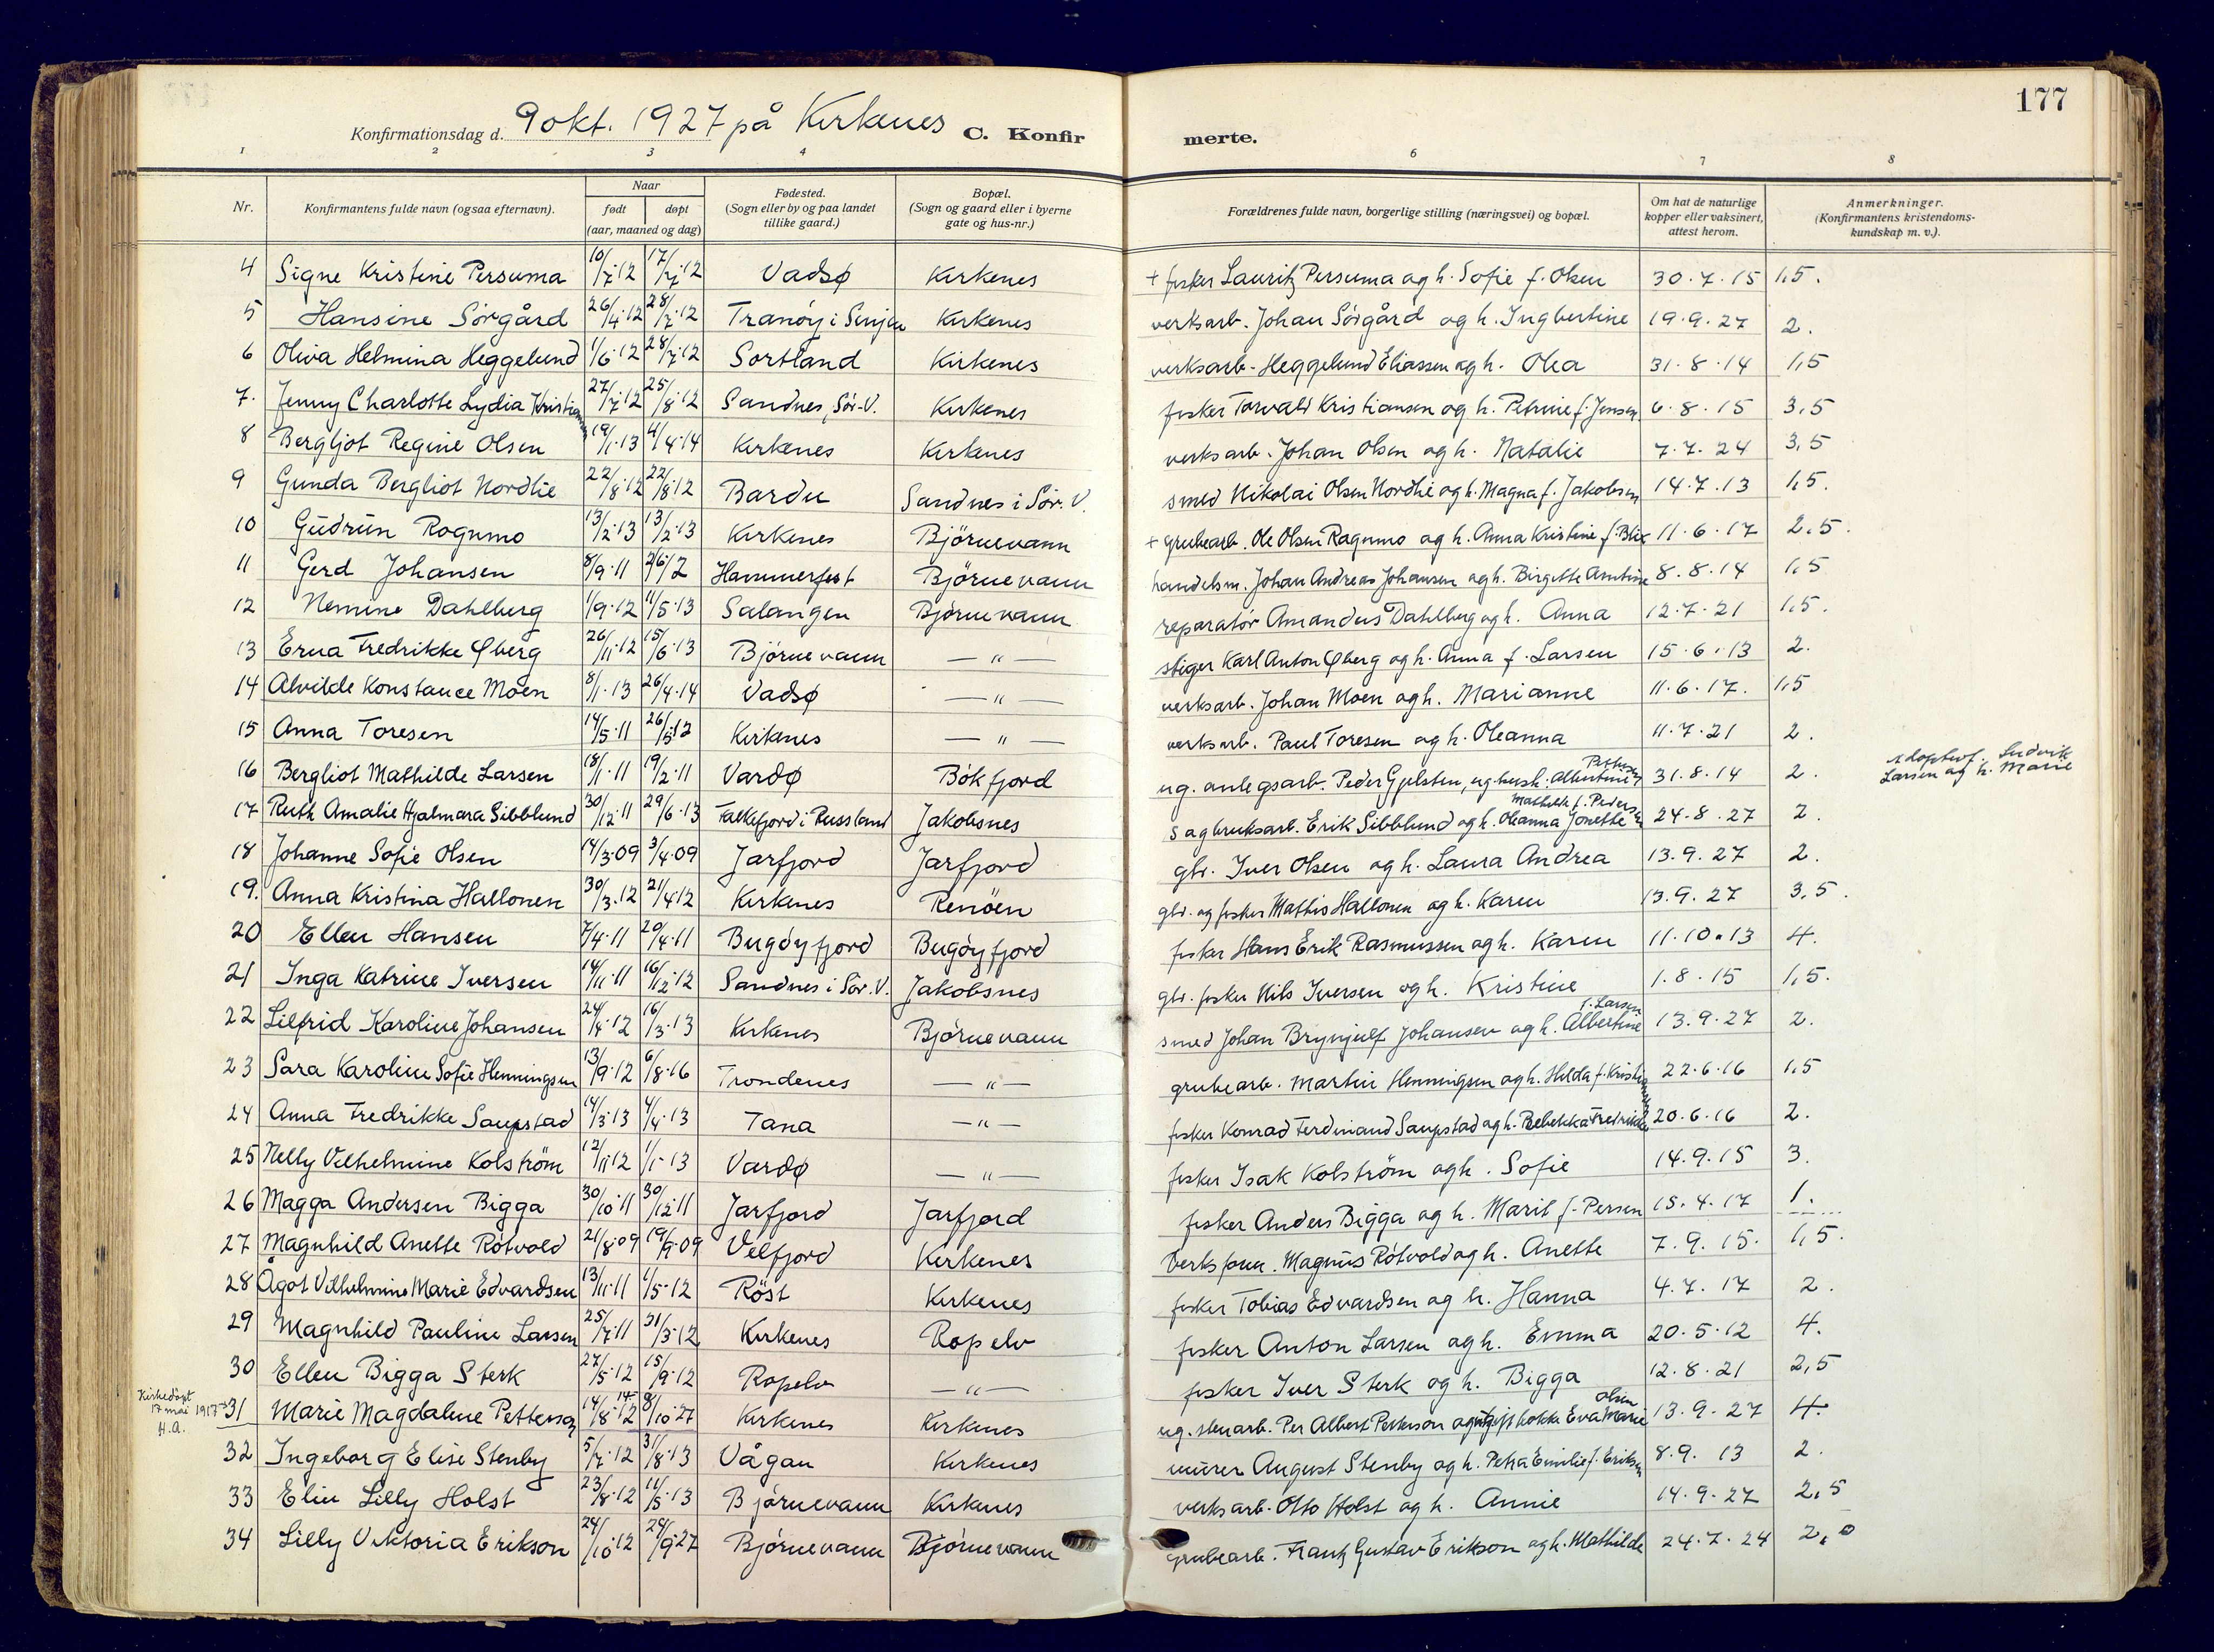 177
Konfirmationsdag d. 9 okt. 1927 på Kirkenes C. Konfir merte.
1 2 3 4 6 7 8
Nr. Konfirmantens fulde navn (ogsaa efternavn). Naar født døpt (aar, maaned og dag) Fødested. (Sogn eller by og paa landet tillike gaard.) Bopæl. (Sogn og gaard eller i byerne gate og hus-nr.) Forældrenes fulde navn, borgerlige stilling (næringsvei) og bopæl. Om hat de naturlige kopper eller vaksinert, attest herom. Anmerkninger. (Konfirmantens kristendoms-kundskap m. v.).
4 Signe Kristine Persuma 10/7·12 17/7·12 Vadsø Kirkenes + fisker Lauritz Persuma og h. Sofie f. Olsen 30·7·15 1,5.
5 Hansine Sörgård 26/4·12 28/7·12 Tranöy i Senjen Kirkenes verksarb. Johan Sörgård og h. Ingbertine 19·9·27 2.
6 Oliva Helmina Heggelund 1/6·12 28/7·12 Sortland Kirkenes verksarb. Heggelund Eliassen og h. Olea 31·8·14 1,5
7. Jenny Charlotte Lydia Kristiansen 27/7·12 25/8·12 Sandnes, Sör-V. Kirkenes fisker Torvald Kristiansen og h. Petrine f. Jensen 6·8·15 3,5
8 Bergljot Regine Olsen 19/1·13 4/4·14 Kirkenes Kirkenes verksarb. Johan Olsen og h. Natalie 7·7·24 3,5
9 Gunda Bergliot Nordlie 22/8·12 22/8·12 Bardu Sandnes i Sör. V. smed Nikolai Olsen Nordlie og h. Magna f. Jakobsen 14·7·13 1,5.
10 Gudrun Rognmo 13/2·13 13/2·13 Kirkenes Björnevann + grubearb. Ole Olsen Rognmo og h. Anna Kristine f. Blix 11·6·17 2,5.
11 Gerd Johansen 8/9·11 Hammerfest Björnevann handelsm. Johan Andreas Johansen og h. Birgitte Amtine 8·8·14 1,5
12 Nemine Dahlberg 1/9·12 11/5·13 Salangen Björnevann reparatör Amandus Dahlberg og h. Anna 12·7·21 1,5.
13 Erna Fredrikke Øberg 26/11·12 15/6·13 Björnevann — " — stiger Karl Anton Øberg og h. Anna f. Larsen 15·6·13 2.
14 Alvilde Konstance Moen 8/1·13 26/4·14 Vadsø — " — verksarb. Johan Moen og h. Marianne 11·6·17. 1,5
15 Anna Toresen 14/5·11 26/5·12 Kirkenes — " — verksarb. Paul Toresen og h. Oleanna 11·7·21 2.
16 Bergliot Mathilde Larsen 18/1·11 19/2·11 Vardø Bökfjord ug. anlegsarb. Peder Gjelsten, ug hush. Albertine Pettersen 31·8·14 2. Adoptivf. Ludvik Larsen og h. Marie
17 Ruth Amalie Hjalmara Sibblund 30/12·11 29/6·13 Falkefjord i Russland Jakobsnes sagbruksarb. Erik Sibblund og h. Oleanna Jonette Mathilde f. Pedersen 24·8·27 2.
18 Johanne Sofie Olsen 14/3·09 3/4·09 Jarfjord Jarfjord gbr. Iver Olsen og h. Laura Andrea 13.9.27 2.
19. Anna Kristina Hallonen 30/3·12 21/4·12 Kirkenes Renöen gbr. og fisker Mathis Hallonen og h. Karen 13.9.27 3,5.
20 Ellen Hansen 7/4·11 20/4·11 Bugöyfjord Bugöyfjord fisker Hans Erik Rasmussen og h. Karen 11·10·13 4.
21 Inga Katrine Iversen 14/11·11 16/12·12 Sandnes i Sör. V. Jakobsnes gbr. fisker Nils Iversen og h. Kristine 1.8·15 1,5.
22 Lilfrid Karoline Johansen 24/4·12 16/3·13 Kirkenes Björnevann smed Johan Brynjulf Johansen og h. Albertine f. Larsen 13.9·27 2.
23 Sara Karoline Sofie Henningsen 13/9·12 6/8·16 Trondenes — " — grubearb. Martin Henningsen og h. Hilda f. Kristiansen 22·6·16 1,5
24 Anna Fredrikke Saupstad 14/3·13 4/4·13 Tana — " — fisker Konrad Ferdinand Saupstad og h. Rebekka Fredrikke 20·6·16 2.
25 Nelly Vilhelmine Kolström 12/11·12 1/1·13 Vardø — " — fisker Isak Kolström og h. Sofie 14.9.15 3.
26 Magga Andersen Bigga 30/10·11 30/12·11 Jarfjord Jarfjord fisker Anders Bigga og h. Marit f. Persen 15.4.17 1.
27 Magnhild Anette Rötvold 21/8·09 19/9·09 Velfjord Kirkenes Verksform. Magnus Rötvold og h. Anette 7.9.15. 1,5.
28 Ågot Vilhelmine Marie Edvardsen 13/11·11 1/5·12 Röst Kirkenes fisker Tobias Edvardsen og h. Hanna 4.7.17 2.
29 Magnhild Pauline Larsen 25/7·11 31/3·12 Kirkenes Ropelv fisker Anton Larsen og h. Emma 20·5·12 4.
30 Ellen Bigga Sterk 27/5·12 15/9·12 Ropelv — " — fisker Iver Sterk og h. Bigga 12.8.21 2,5
Kirkedöpt 17 mai 1917 H.A.
31 Marie Magdalene Petterson 14/8·12 14 8/10·27 Kirkenes Kirkenes ug. stenarb. Per Albert Petterson og ugift kokke Eva Marie Olsen 13.9.27 4.
32 Ingeborg Elise Stenby 5/7·12 31/8·13 Vågan Kirkenes murer August Stenby og h. Petra Emilie f. Eriksen 8.9.13 2.
33 Elin Lilly Holst 23/8·12 11/5·13 Björnevann Kirkenes verksarb. Otto Holst og h. Annie 14·9·27 2,5
34 Lilly Viktoria Erikson 24/10·12 24/9·27 Björnevann Björnevann grubearb. Frantz Gustav Erikson og h. Mathilde 24·7·24 2,0